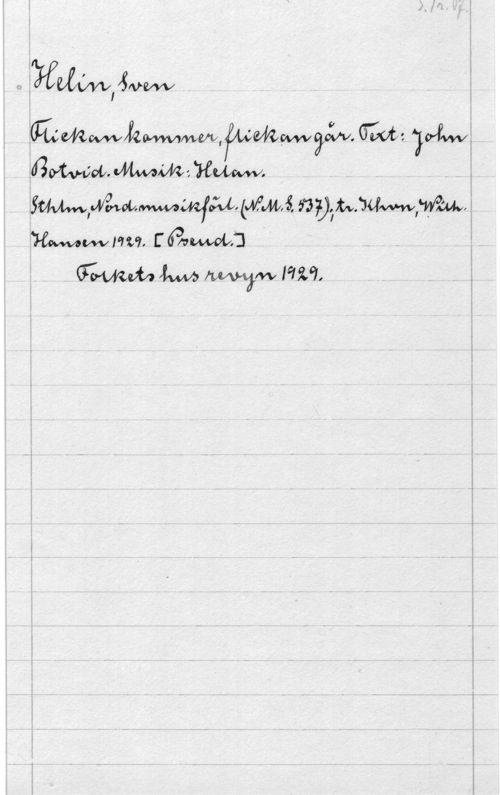 Helin, Sven
Flickan kommer, flickan går. Text: John
Botvid. Musik: Helan.
Sthlm, Nord. musikförl. (N.M.S. 537); tr. Khvn, Wilh.
Hansen 1929. [Pseud.]
Folkets hus revyn 1929.